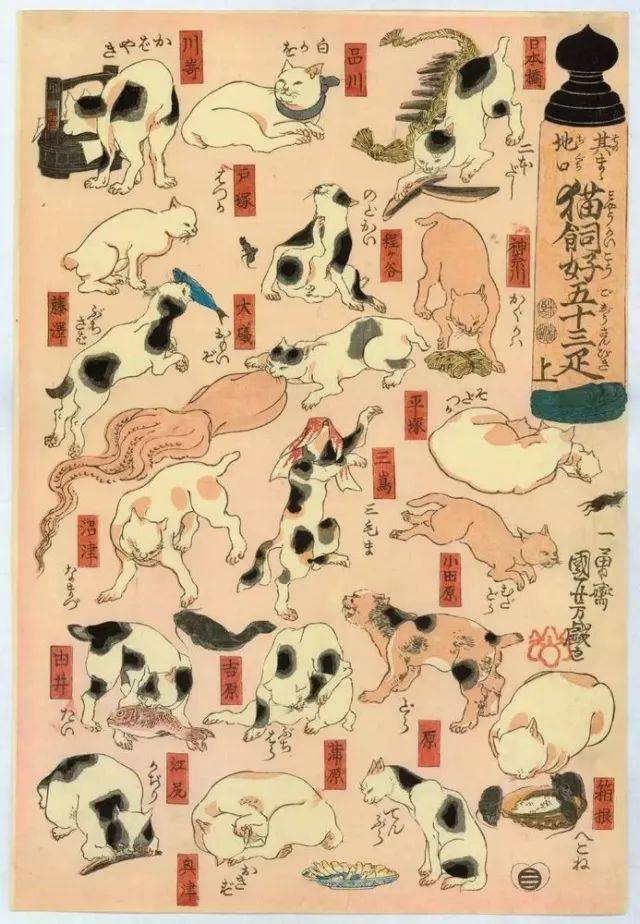 其まゝ地口
猫飼好五十三疋
上
日本橋
二本だし
品川
白かを
川嵜
かばやき
神奈川
かぐかハ
程ヶ谷
のどかい
戸塚
はつか
平塚
そだつか
大磯
おもいぞ
藤澤
ぶちさば
小田原
むだどら
三嶌
三毛ま
沼津
なまづ
箱根
へこね
原
どら
吉原
ぶちはら
由井
たい
蒲原
てんぷら
奥津
おきず
江尻
かぢり
一勇齋